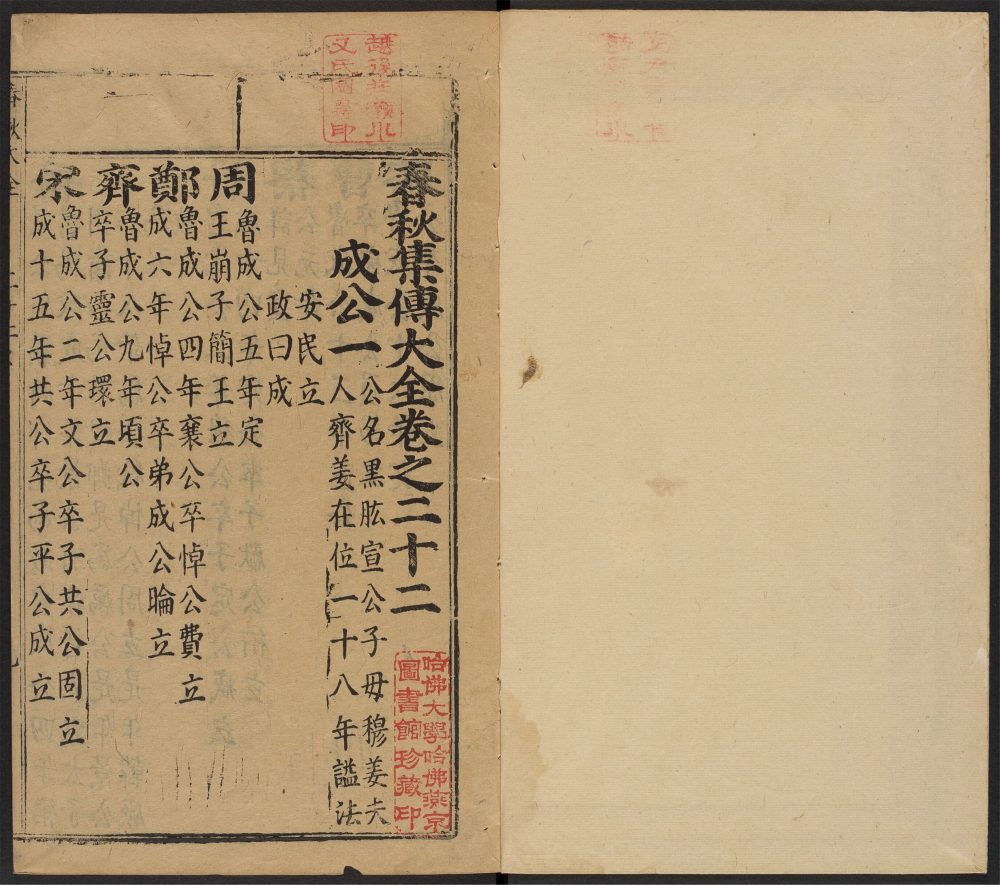 春秋集傳大全卷之二十二
成公一
公名黑肱宣公子母穆姜夫
人齊姜在位一十八年謚法
安民立
政曰成
周
魯成公五年定
王崩子簡王立
鄭
魯成公四年襄公卒悼公費立
成六年悼公卒弟成公㬀立
齊
魯成公九年頃公
卒子靈公環立
宋
魯成公二年文公卒子共公固立
成十五年共公卒子平公成立
哈佛大學哈佛燕京
圖書館珍藏印